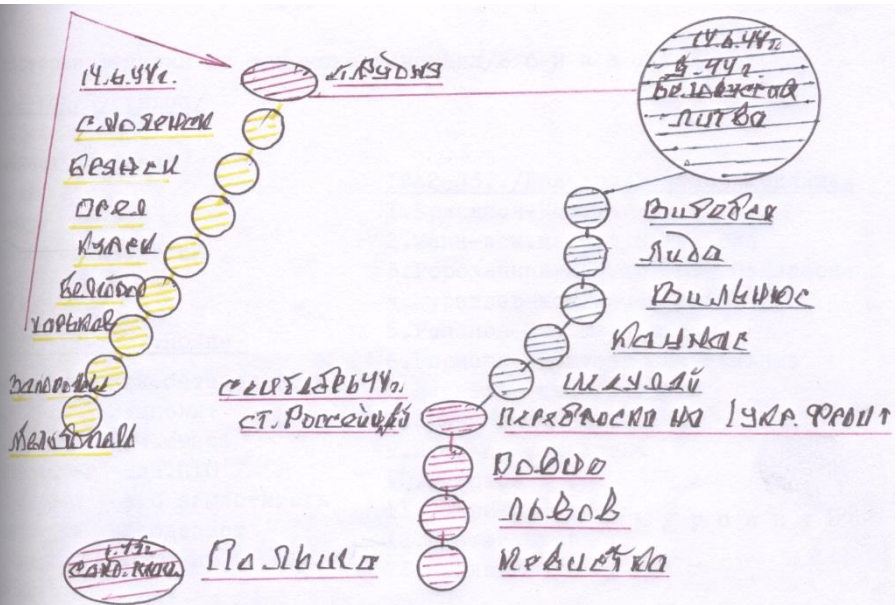 14.6.44г.
ст. Рудня
Смоленск
Брянск
Орел
Курск
Белгород
Харьков
Запорожье
Мелитополь
14.6.44г.
Белорусско
Литва
Витебск
Лида
Вильнюс
Каунас
Шяуляй
Сентябрь 44г.
ст. Россейняй
Переброска на 1 укр. фронт
Ровно
Львов
Невистка
1.45г.
Санд.